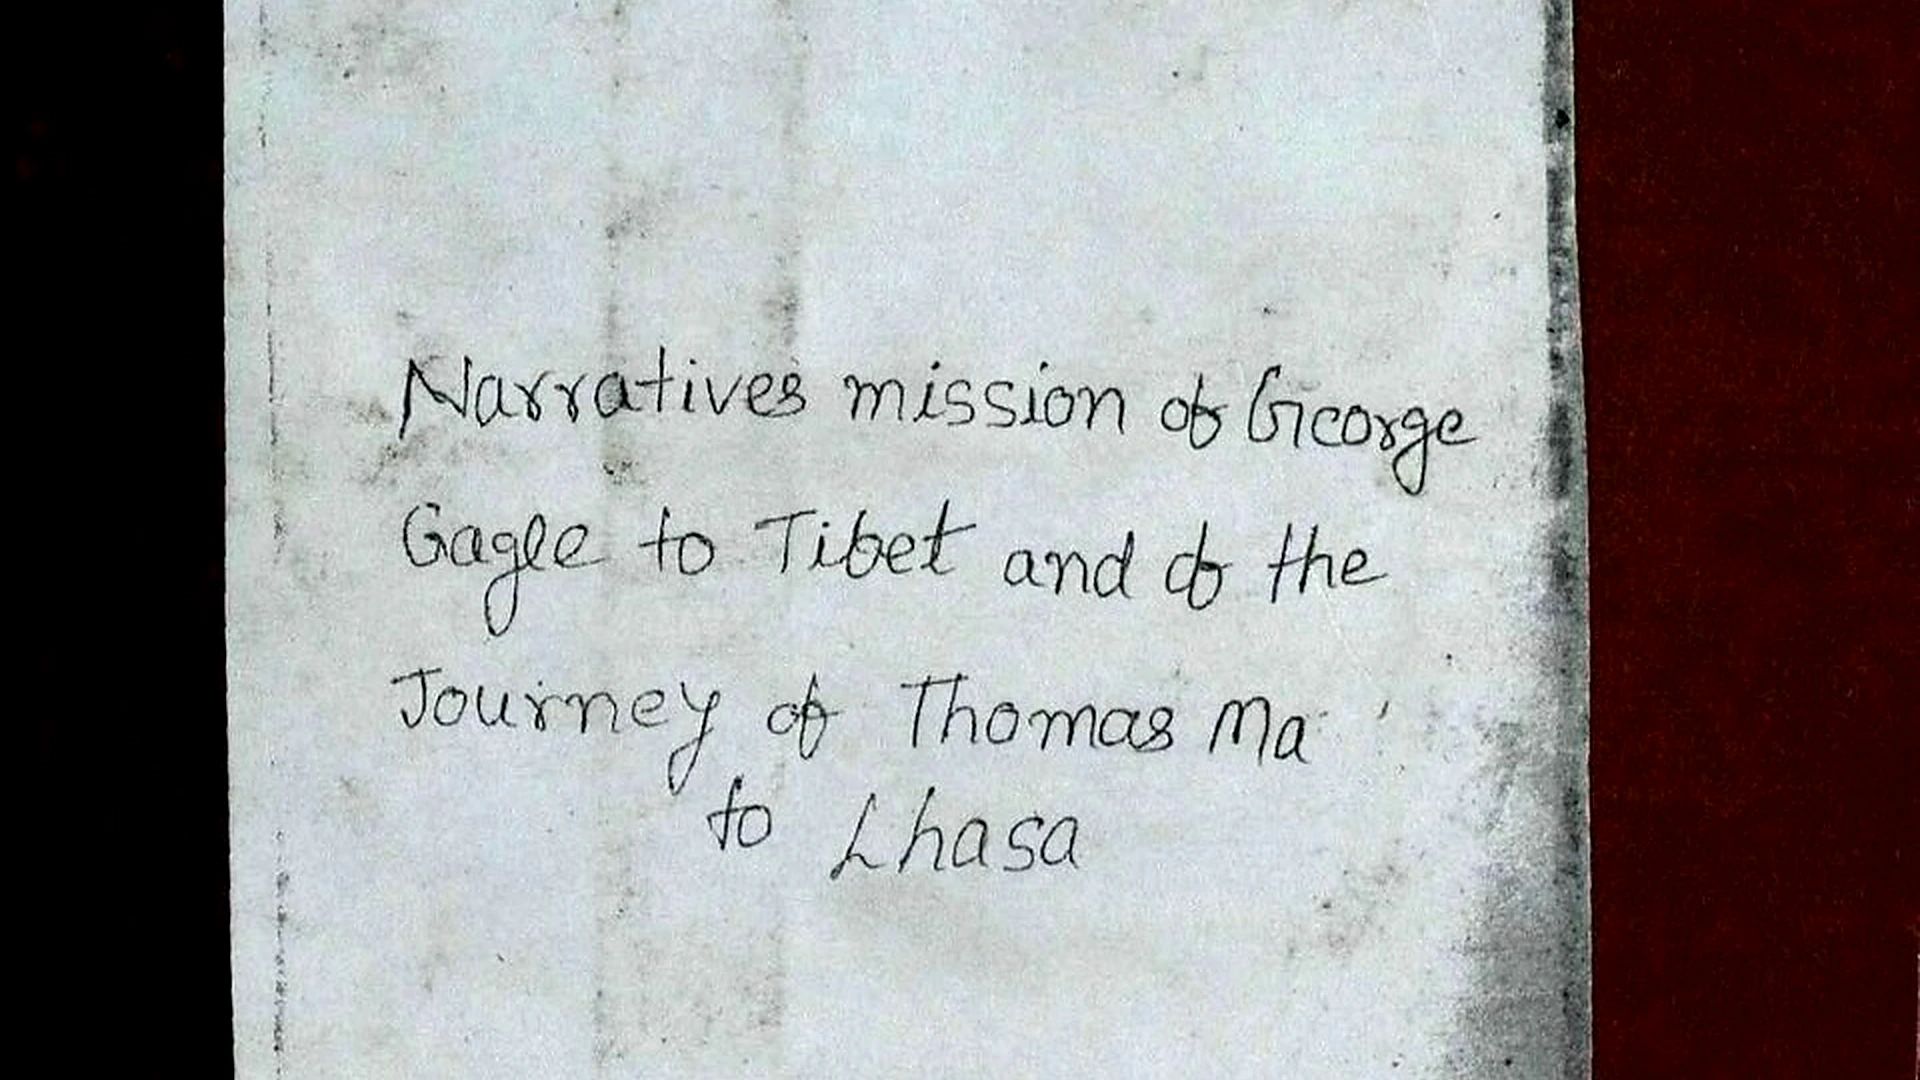 Narratives mission of George
Gagle to Tibet and of the
Journey of Thomas Ma
to Lhasa